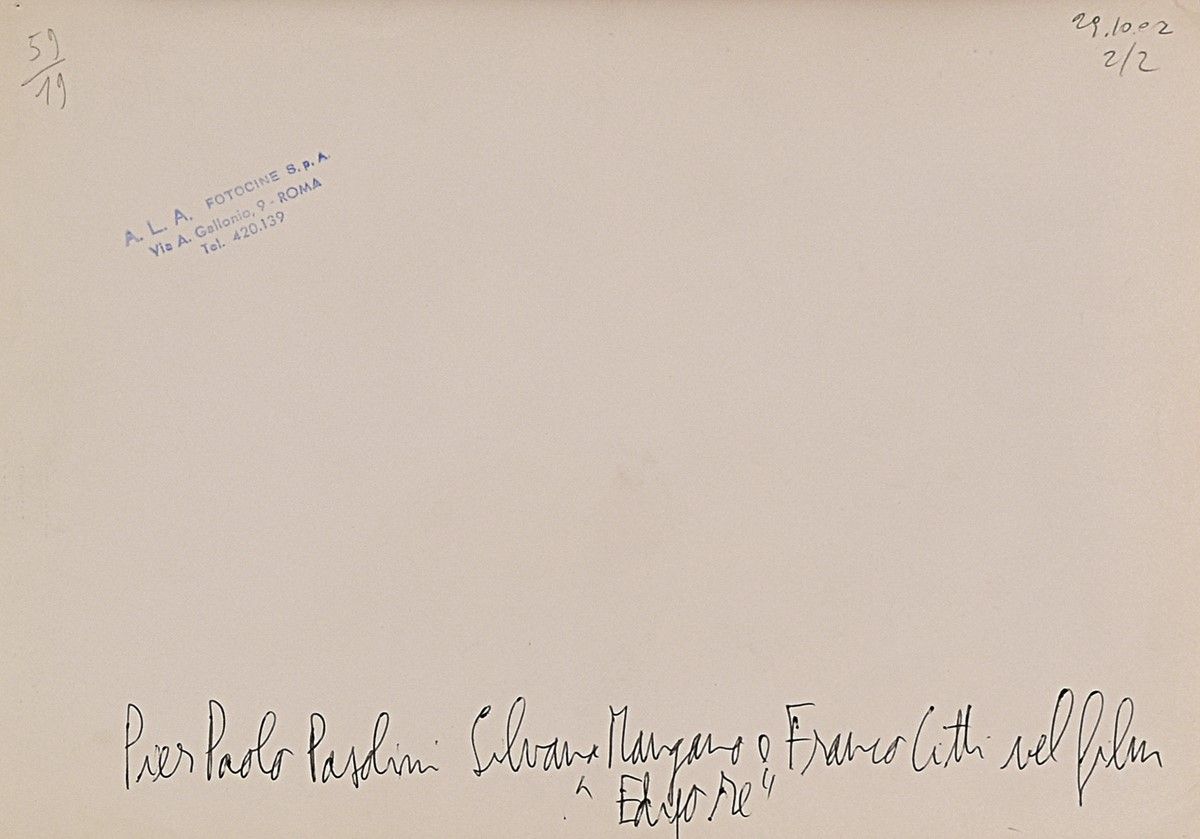 59
19
29.10.02
2/2
A. L. A. FOTOCINE S.p.A.
Via A. Gallonio, 9 - ROMA
Tel. 420.139
Pier Paolo Pasolini Silvana Mangano e Franco Citti nel film
"Edipo Re"